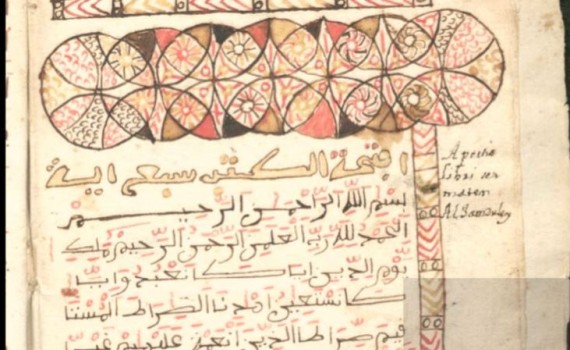 افتحة الكتب سبع اية
بسم الله الرحمن الرحيم
الحمد لله رب العلمين الرحمن الرحيم ملك
يوم الدين اياك نعبد وايا
ك نستعين اهدنا الصراط المستـ
قيم صراط الذين انعمت عليهم غير
libri